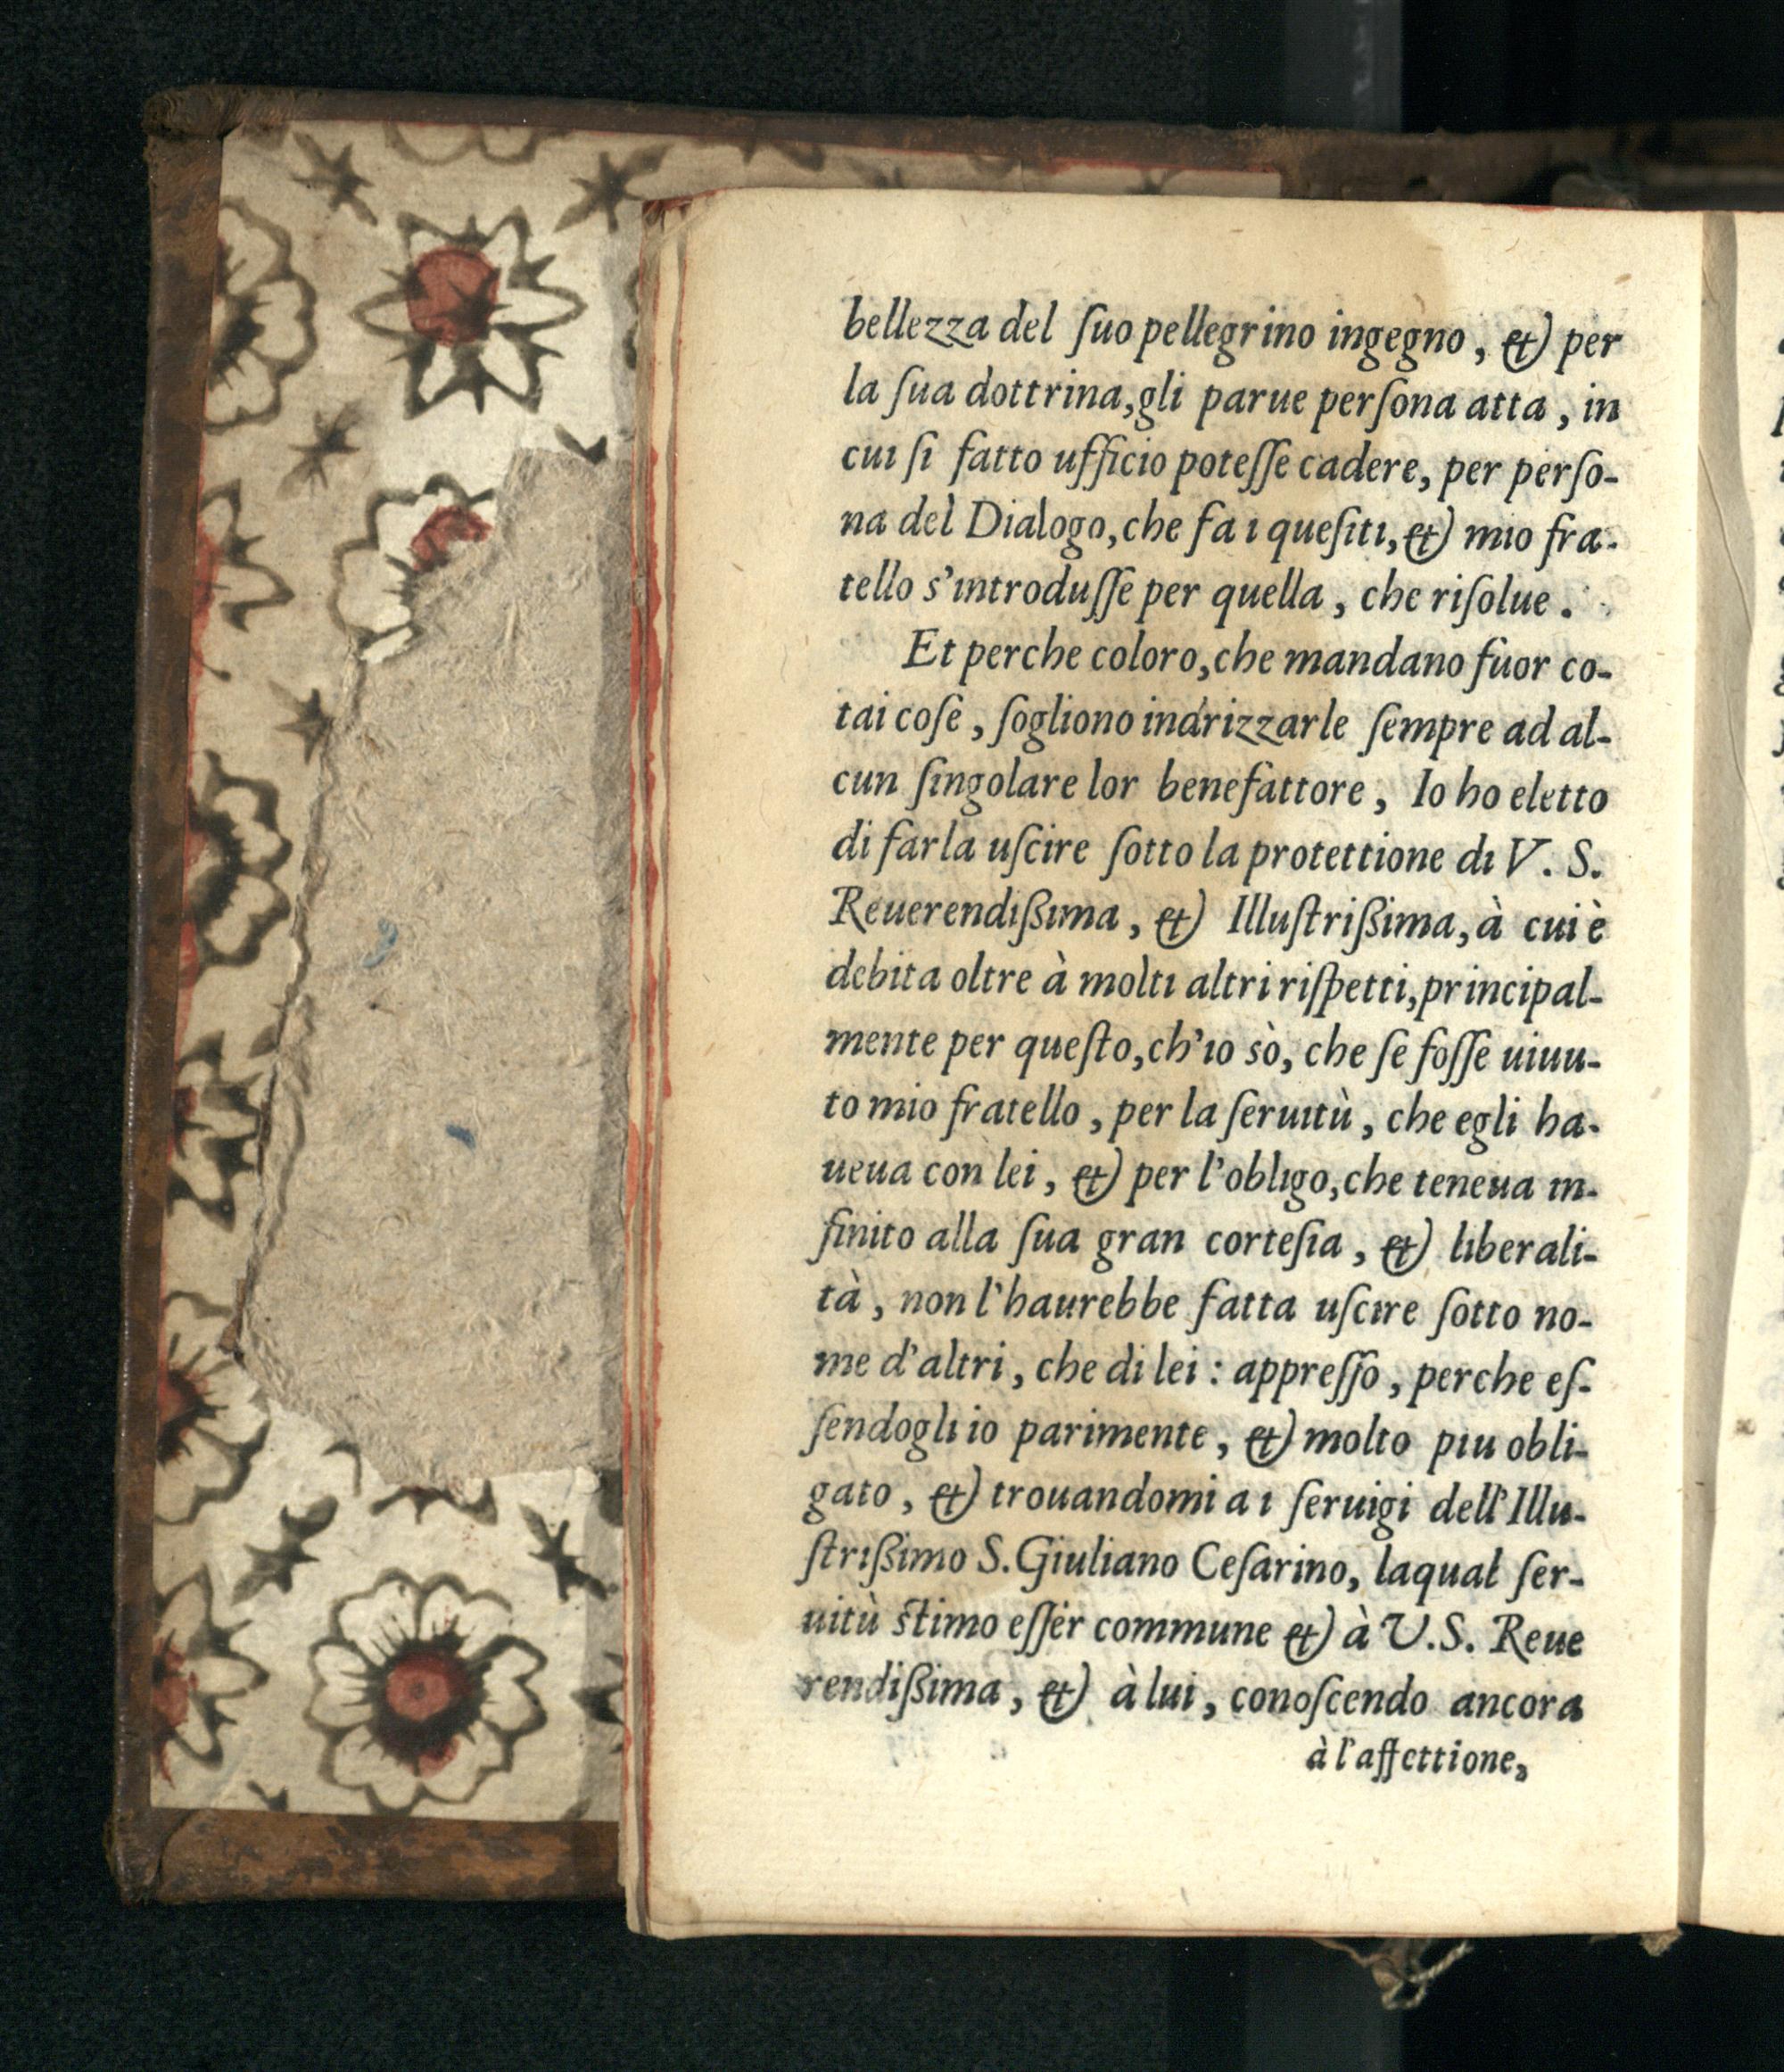 bellezza del ſuo pellegrino ingegno, & per
la ſua dottrina, gli parue perſona atta, in
cui ſi fatto ufficio poteſſe cadere, per perſo-
na del Dialogo, che fa i queſiti, & mio fra-
tello s'introduſſe per quella, che riſolue.
Et perche coloro, che mandano fuor co-
tai coſe, ſogliono indrizzarle ſempre ad al-
cun ſingolare lor benefattore, Io ho eletto
di farla uſcire ſotto la protettione di V. S.
Reuerendißima, & Illuſtrißima, à cui è
debita oltre à molti altri riſpetti, principal-
mente per queſto, ch'io sò, che ſe foſſe uiuu-
to mio fratello, per la ſeruitù, che egli ha-
ueua con lei, & per l'obligo, che teneua in-
finito alla ſua gran corteſia, & liberali-
tà, non l'haurebbe fatta uſcire ſotto no-
me d'altri, che di lei: appreſſo, perche eſ-
ſendogli io parimente, & molto piu obli-
gato, & trouandomi a i ſeruigi dell'Illu-
ſtrißimo S. Giuliano Ceſarino, laqual ſer-
uitù ſtimo eſſer commune & à V.S. Reue
rendißima, & à lui, conoſcendo ancora
à l'affettione,